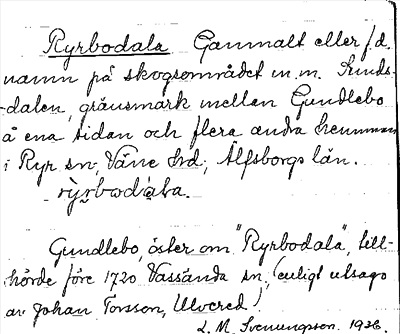 Ryrbodala Gammalt eller f.d.
namn på skogsområdet m.m. Sunds-
-dalen, gränsmark mellan Gundlebo
å ena sidan och flera andra hemman
i Ryr sn, Väne hd, Älfsborgs län.
Gundlebo, öster om "Ryrbodala", till-
hörde före 1720 Vassända sn, (enligt utsago
av Johan Tonsson, Ulvered)
L. M. Svenungsson. 1936.